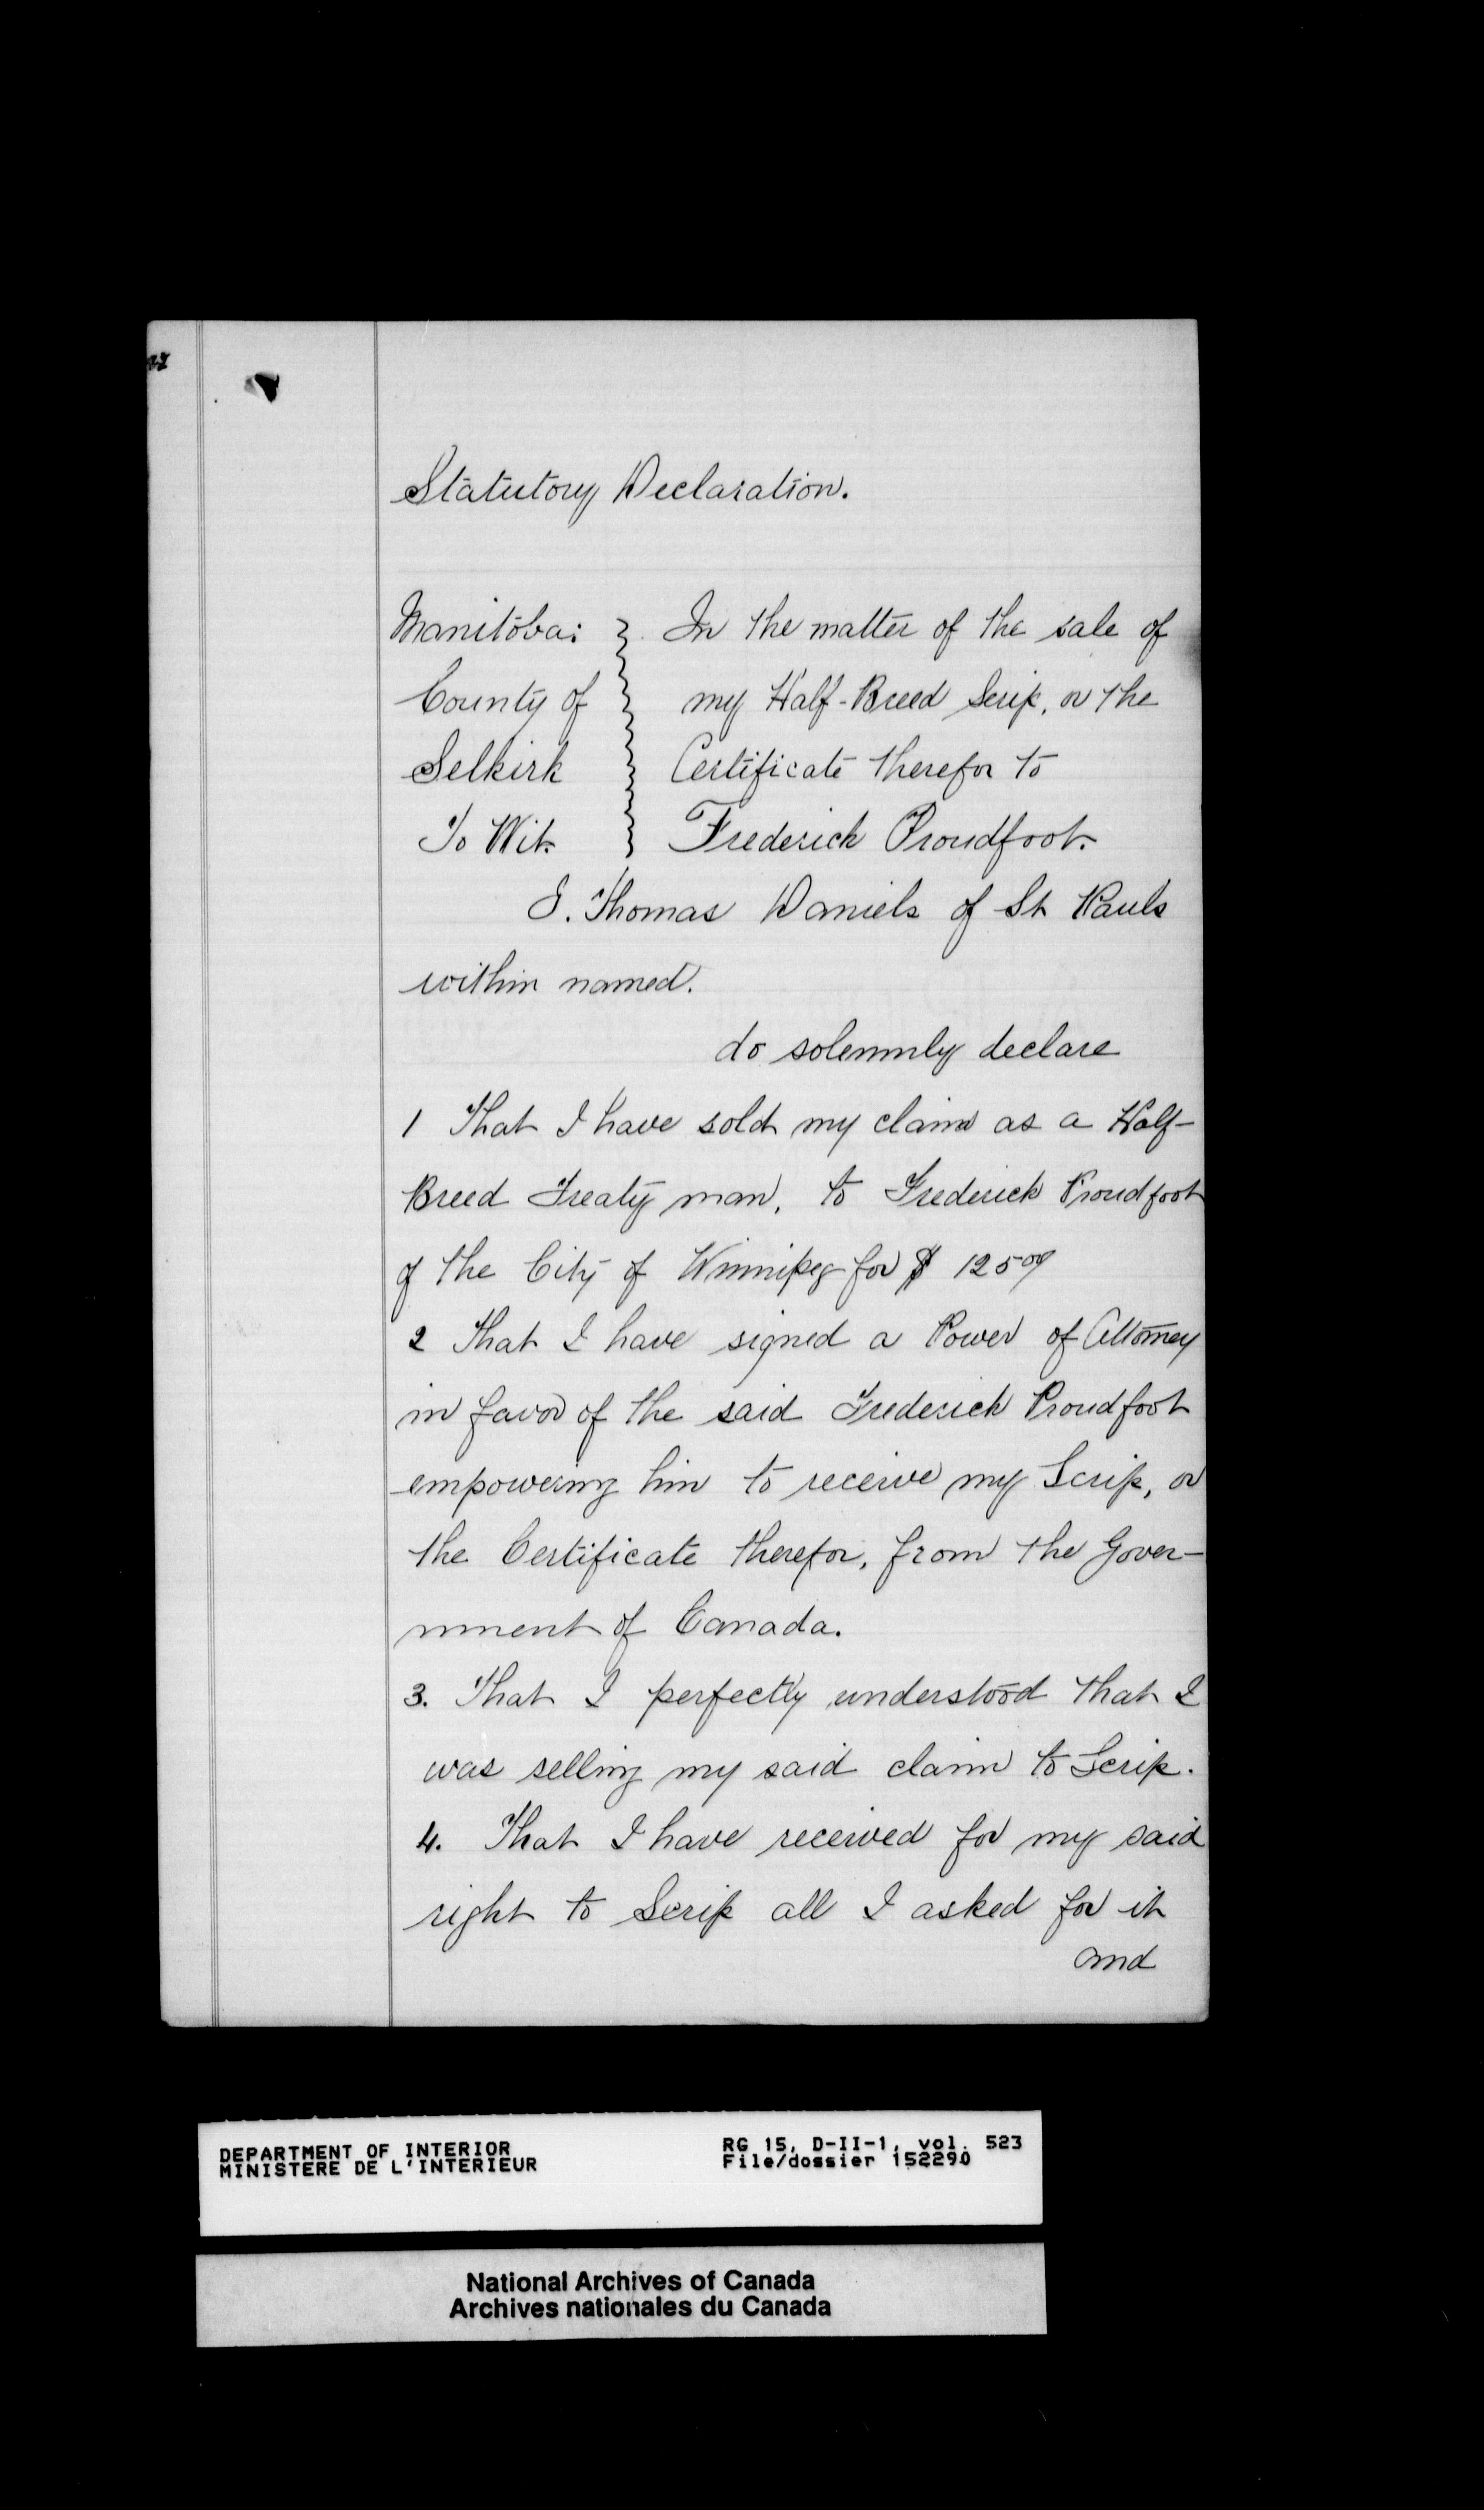 Statutory Declaration.
Manitoba: In the matter of the sale of
County of my Half-Breed Scrip, or the
Selkirk Certificate therefor to
To Wit. Frederick Proudfoot.
I. Thomas Daniels of St Pauls
within named.
do solemnly declare
1 That I have sold my claim as a Half-
Breed Treaty man, to Frederick Proudfoot
of the City of Winnipeg for $ 125 00/
2 That I have signed a Power of Attorney
in favor of the said Frederick Proudfoot
empowering him to receive my Scrip, or
the Certificate therefor, from the Gover-
nment of Canada.
3. That I perfectly understood that I
was selling my said claim to Scrip.
4. That I have received for my said
right to Scrip all I asked for it
and
DEPARTMENT OF INTERIOR RG 15, D-II-1, vol. 523
MINISTERE DE L'INTERIEUR File/dossier 152290
National Archives of Canada
Archives nationales du Canada